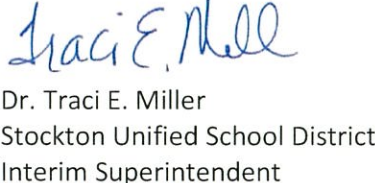 Traci E. Mill
Dr. Traci E. Miller
Stockton Unified School District
Interim Superintendent